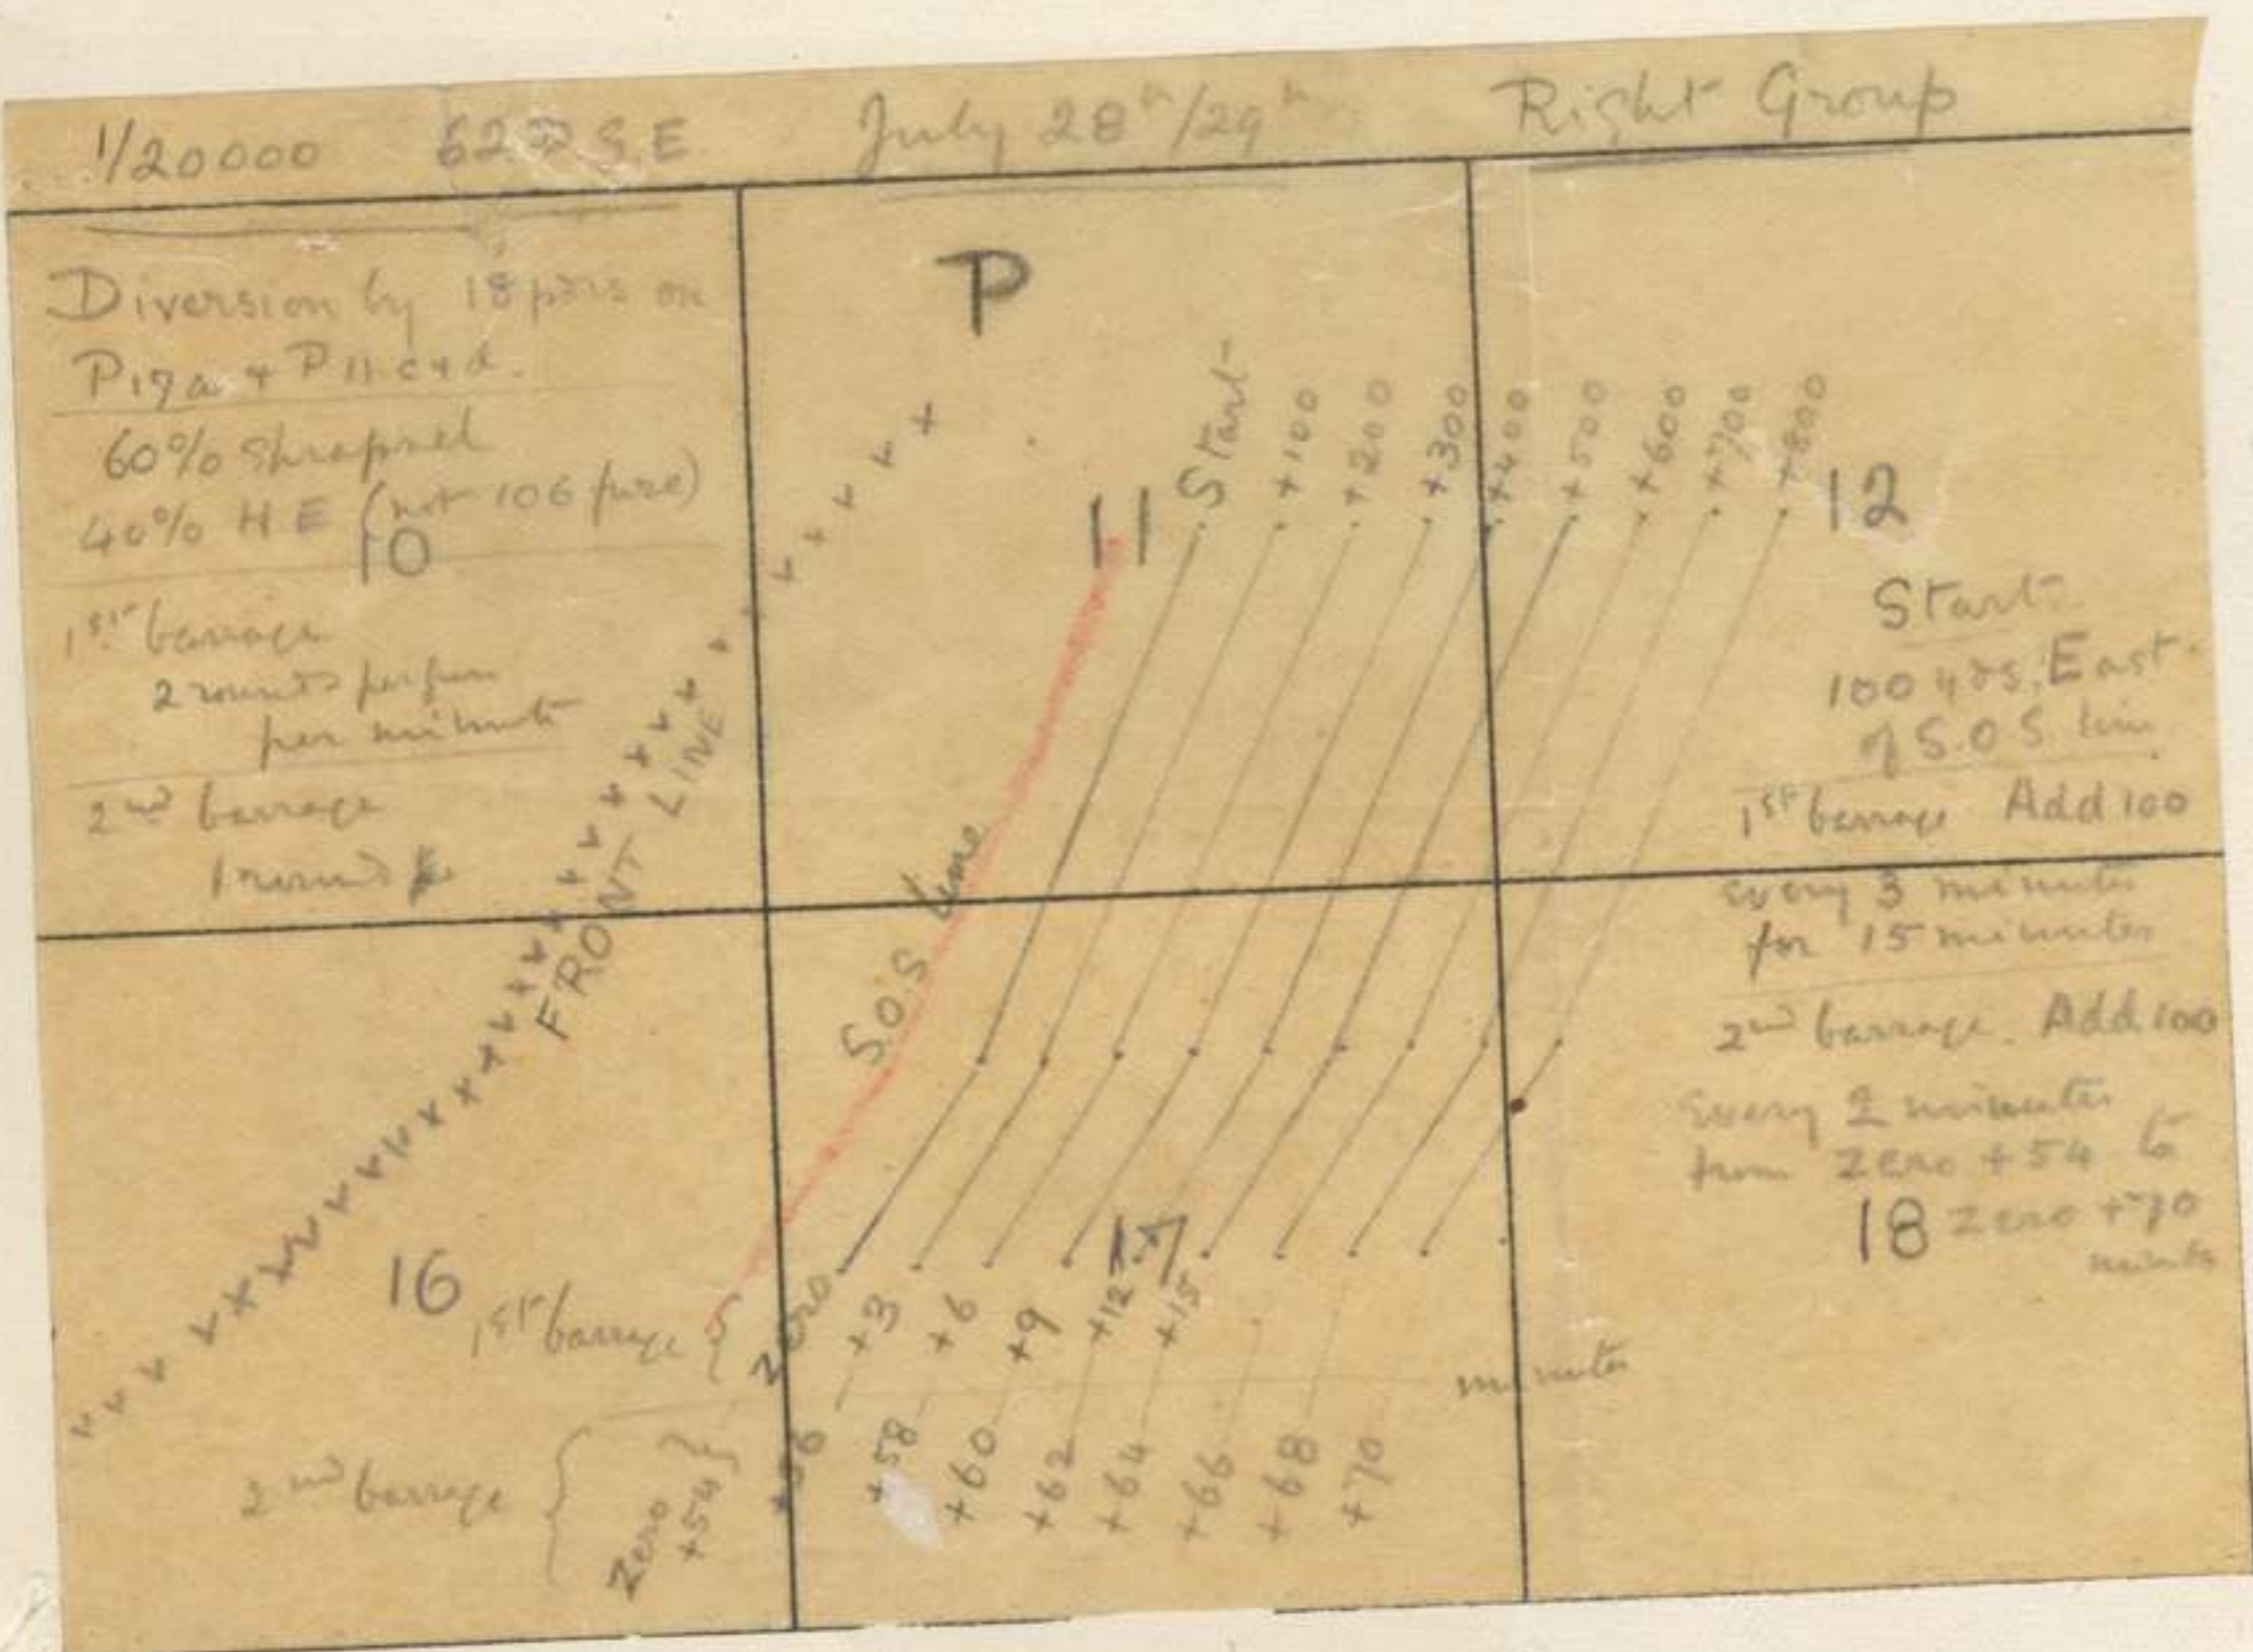 1/20000 62D S.E July 28th/29th Right Group
Diversion by 18 pdrs on
P17a + P11 c+d.
60% Shrapnel
40% H E (not 106 fuse)
10
1st barrage
2 rounds per gun
per minute
2nd barrage
1 round
P
11
Start
+100
+200
+300
+400
+500
+600
+700
+800
12
Start
100 yds. East
of S.O.S. line
1st barrage Add 100
every 3 minutes
for 15 minutes
2nd barrage. Add 100
Every 2 minutes
from Zero +54 to
Zero +70
minutes
18
FRONT LINE
S.O.S Line
16
17
1st barrage {
Zero
+3
+6
+9
+12
+15
minutes
2nd barrage {
Zero
+54 }
+56
+58
+60
+62
+64
+66
+68
+70